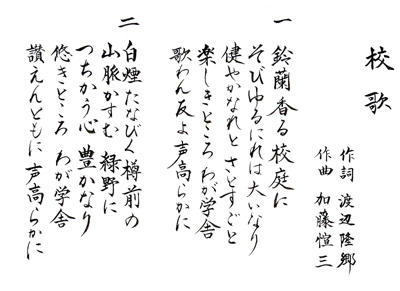 校歌
作詞 渡辺隆郷
作曲 加藤愃三
一 鈴蘭香る校庭に
そびゆるにれは大いなり
健やかなれと さとすごと
楽しきところ わが学舎
歌わん友よ 声高らかに
二 白煙たなびく樽前の
山脈かすむ 緑野に
つちかう心 豊かなり
悠きところ わが学舎
讃えんともに 声高らかに